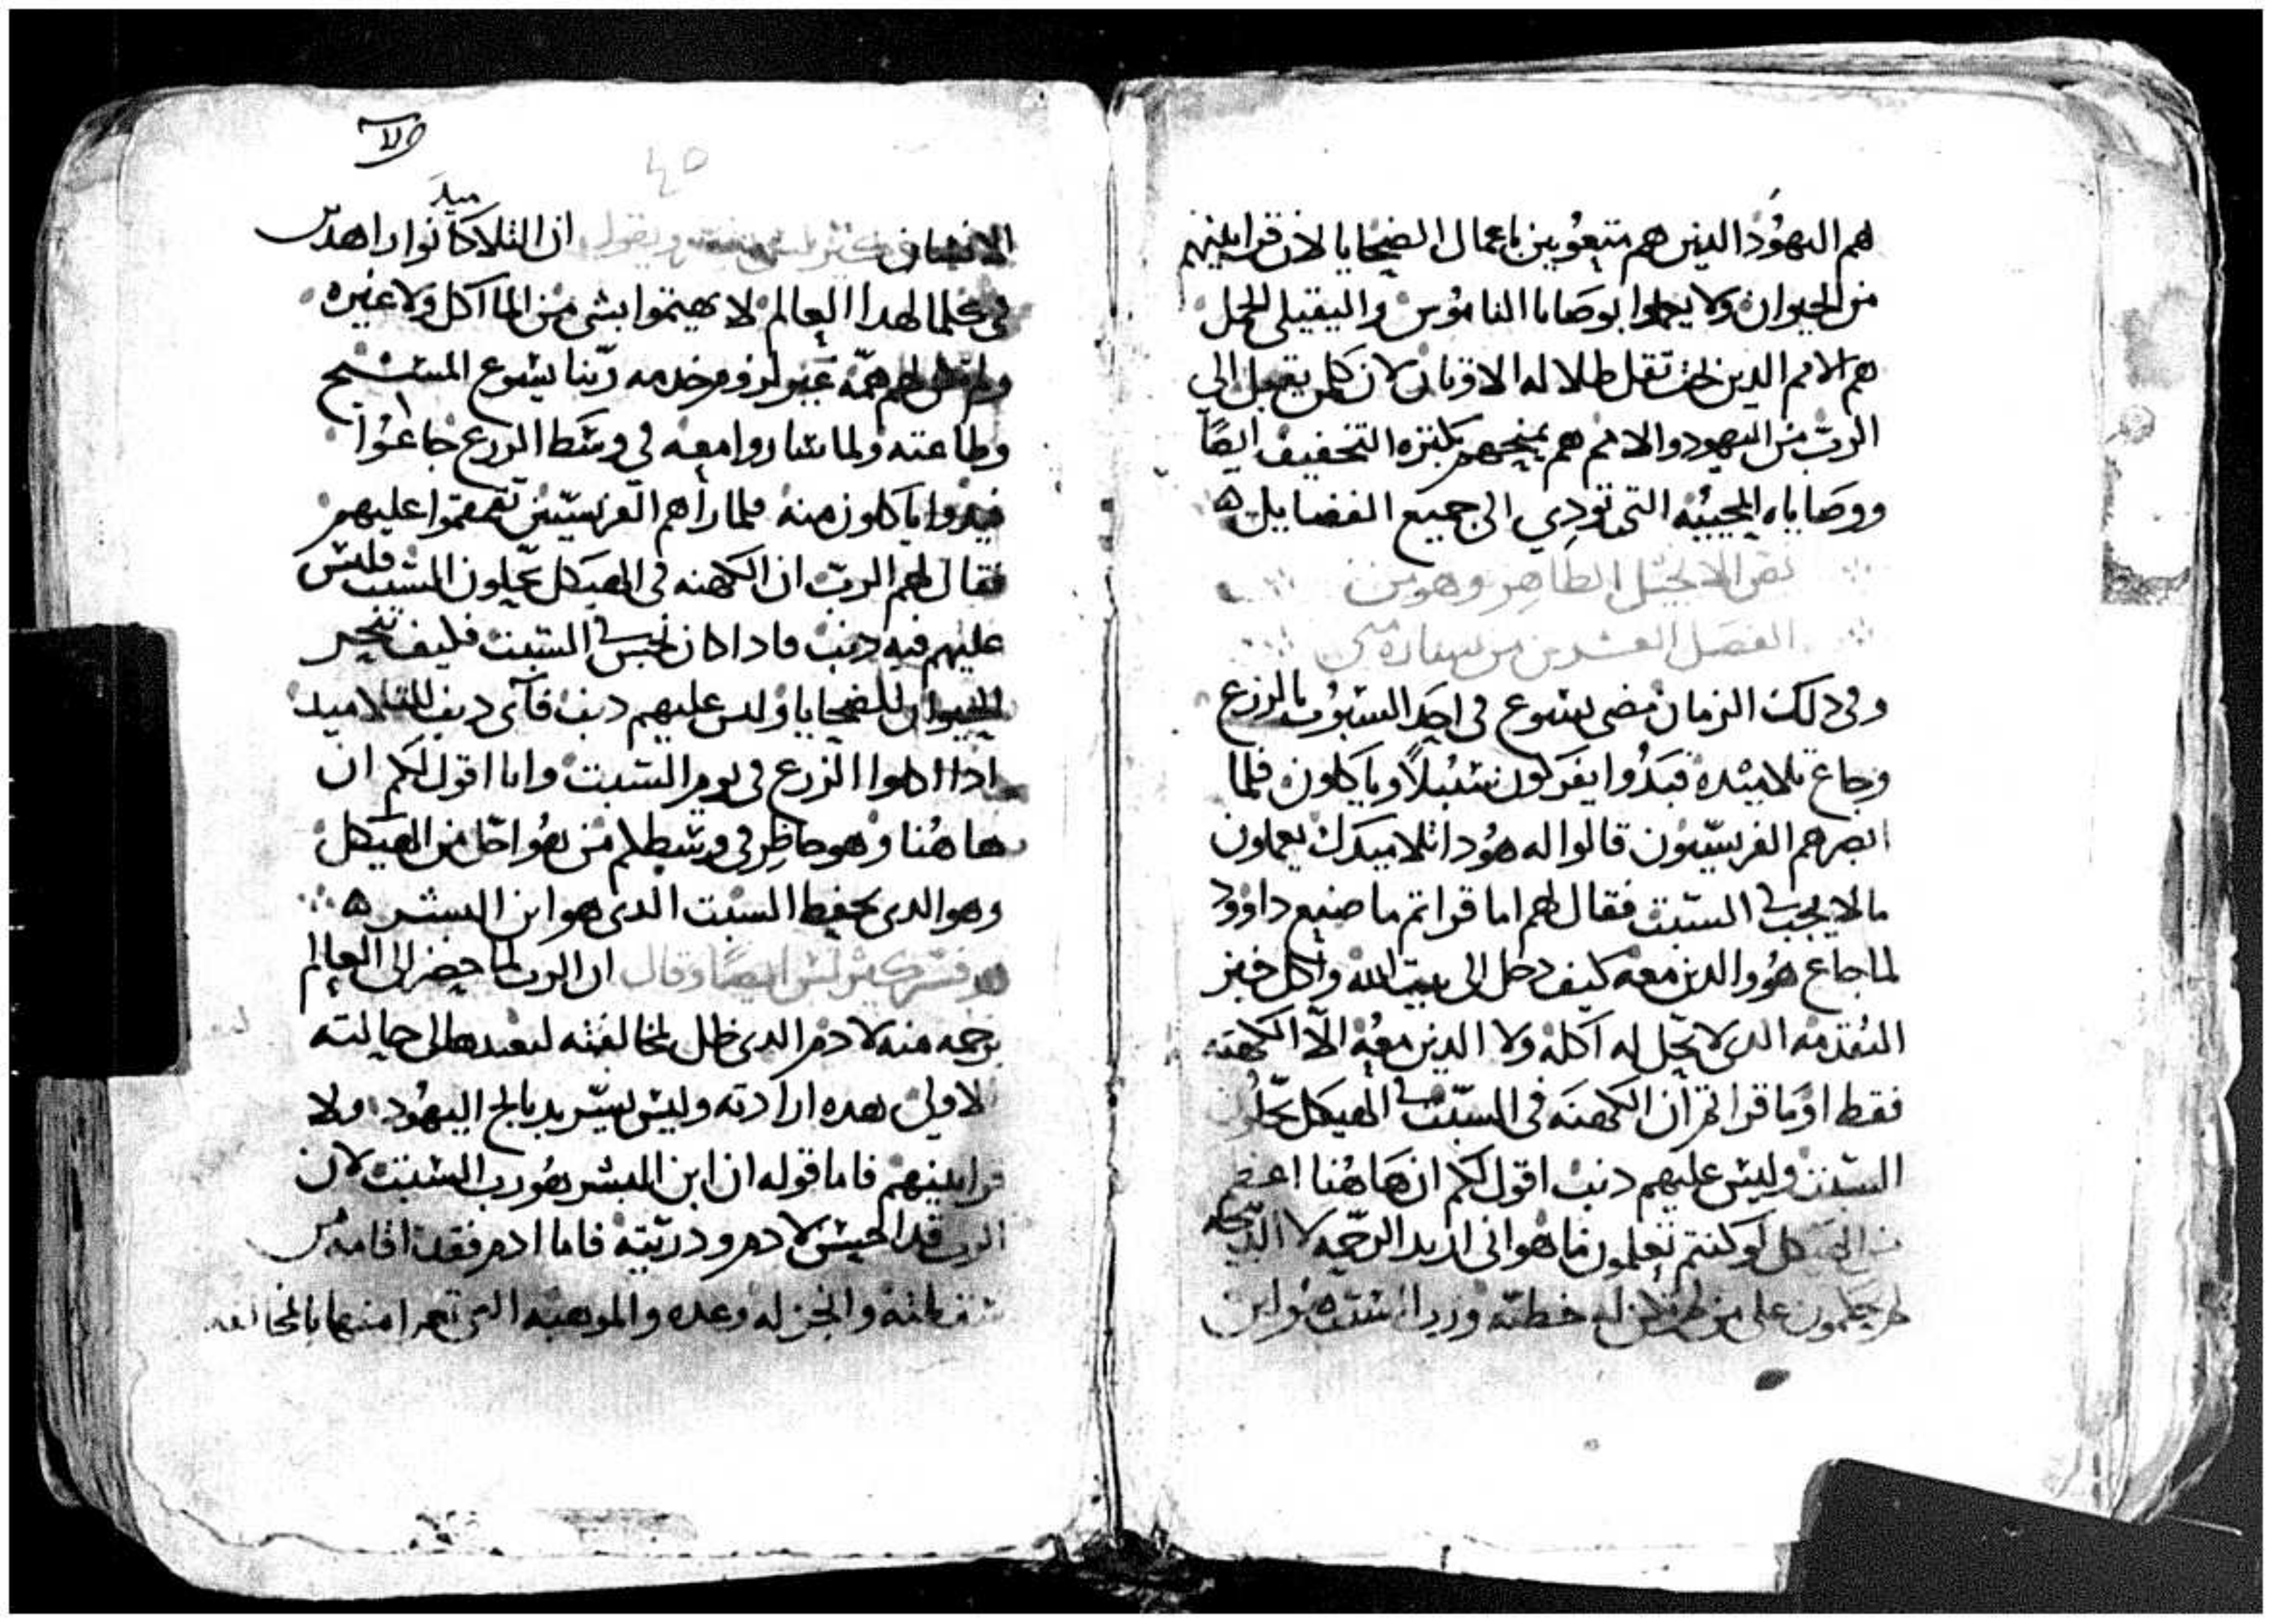 هم اليهود الدين هم متعوبين باعمال الضحايا لان قرابينهم
من الحيوان ولا يعملوا بوصايا الناموس والتقيلى الحمل
هم الامم الدين تقل الاوتان لان كلمن يقبل الى
الرب من اليهود والامم هم يمنحهم بكتره التخفيف ايضًا
ووصاياه المحييه التى تودي الى جميع الفضايل
نص الانجيل الطاهر وهو من
الفصل العشرين من بشاره متى
وفى دلك الزمان مضى يسوع فى احد السبوت بالزرع
وجاع تلاميده فبدُوا يفركون سنبلاً وياكلون فلما
ابصرهم الفريسيون قالوا له هُودا تلاميدك يعملون
مالا يجب فى السبت فقال لهم اما قراتم ما صنع داوود
لما جاع هُو والدين معه كيف دخل الى بيت الله واكل خبز
التقدمه الدى لا يحل له اكله ولا الدين معه الا الكهنه
فقط او ما قراتم ان الكهنه فى السبت فى الهيكل يحلون
السبت وليس عليهم دنب اقول لكم ان هاهُنا اعظم
من الهيكل لو كنتم تعلمون ما هو انى اريد الرحمه لا الدبيحه
لم تحكمون على من خطيه ورب السبت هو ابن
الانسان ويقول ان التلاميد كانوا زاهدين
فى كلما لهدا العالم لا يهتموا بشى من الماكل ولا غيره
ولم لهم همّه غير لزوم خدمه ربنا يسوع المسيح
وطاعته ولما ساروا معه في وسط الزرع جاعوا
فبدوا ياكلون منه فلما راهم الفريسيين تقمقموا عليهم
فقال لهم الرب ان الكهنه فى الهيكل يحلون السبت وليس
عليهم فيه دنب فادا كان السبت فكيف
الحيوان للضحايا وليس عليهم دنب فاى دنب للتلاميد
ادا اكلوا الزرع فى يوم السبت وانا اقول لكم ان
هاهُنا وهو حاظر فى وسطكم من هُو اجل من الهيكل
وهو الدى يحفظ السبت الدى هو ابن البشر
ايضًا وقال ان الرب لما حضر الى العالم
رحمه منه لادم الدى ظل لمخالفته ليعيدها الى حالته
الاولى هده ارادته وليس يريد دبايح اليهُود ولا
قرابينهم فاما قوله ان ابن البشر هُو رب السبت لان
الرب لادم ودريته فاما ادم فقد اقامه من
سقطته وانجز له وعده والموهبه التى تعرا منها بالمخالفه